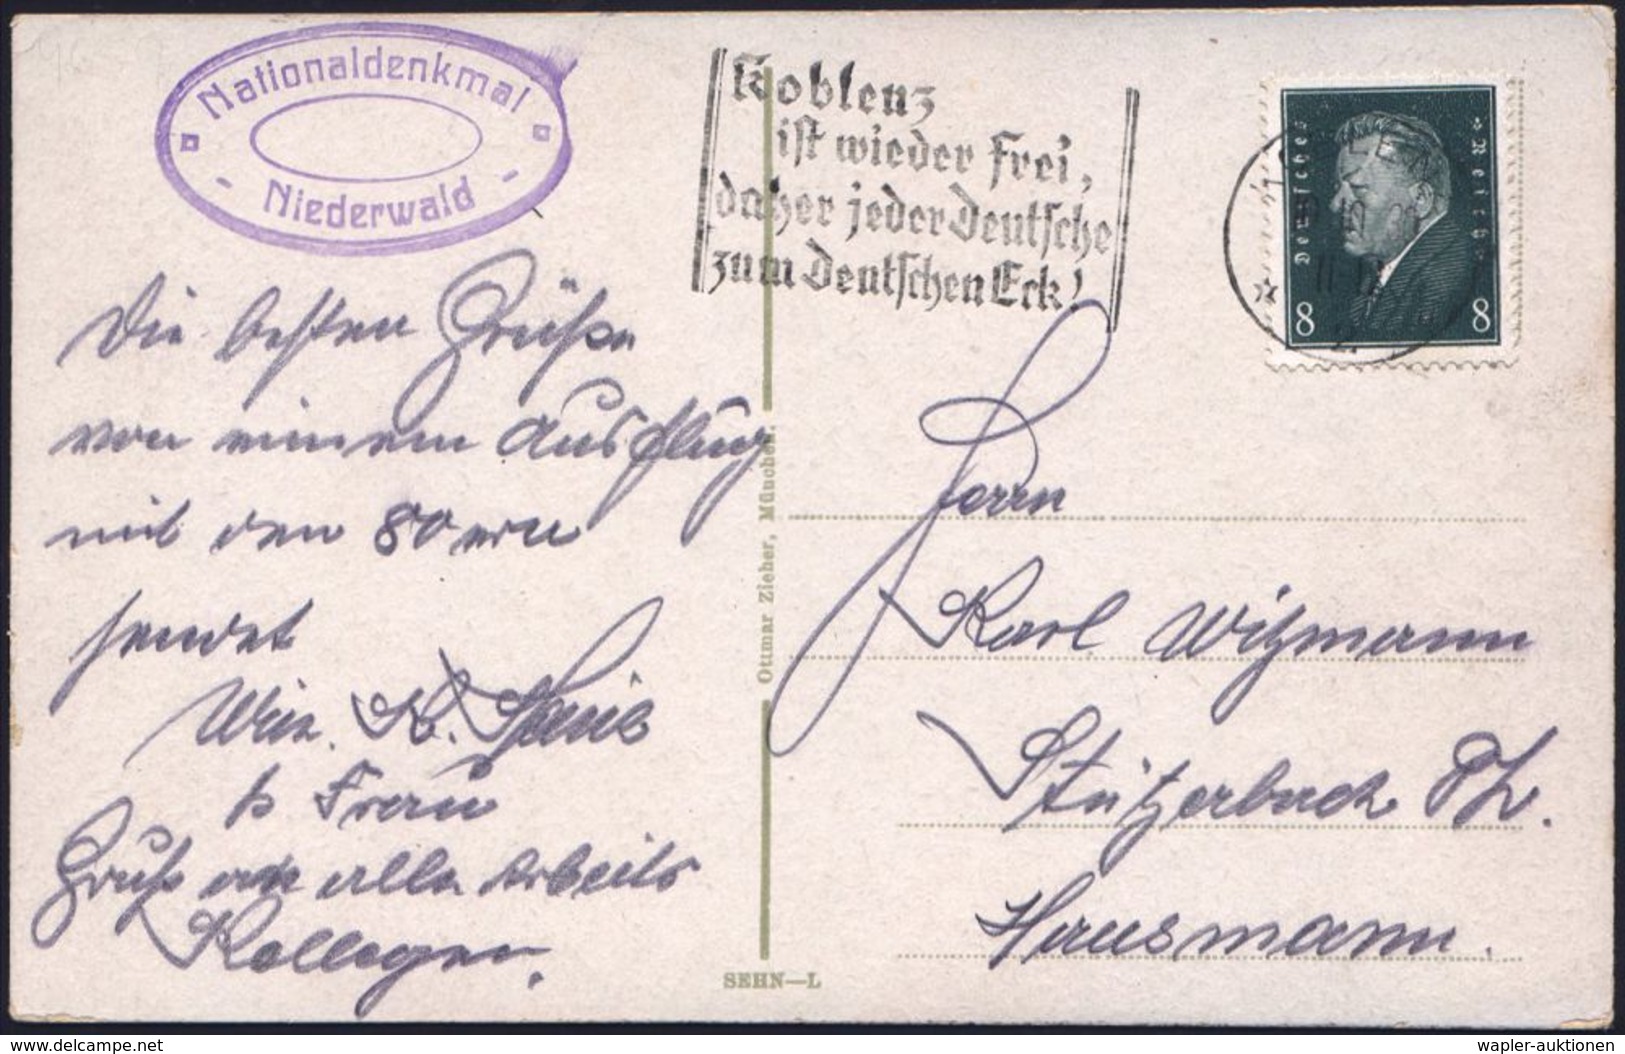 Nationaldenkmal
- Niederwald -
Koblenz
ist wieder frei,
daher jeder Deutsche
zum Deutschen Eck!
Deutsches Reich
8 8
Die besten Grüße
von einem Ausflug
mit den 80 ern
sendet
K.
b Frau
Gruß an alle Arbeits
Kollegen.
Ottmar Zieher, München.
SEHN—L
Herrn
Karl Witzmann
Stützerbach Th.
Hausmann.
delcampe.net
wapler-auktionen